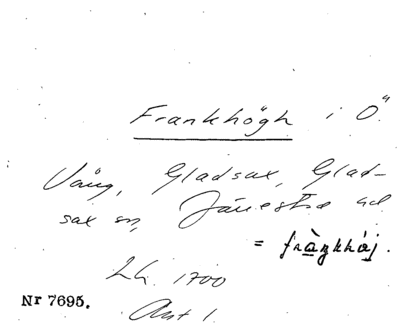 Frankhögh i Ö.
Vång, Gladsax, Glad-
sax sn, Järrestad
= frankhåj.
Lh. 1700
Nr 7695. Ant 1.